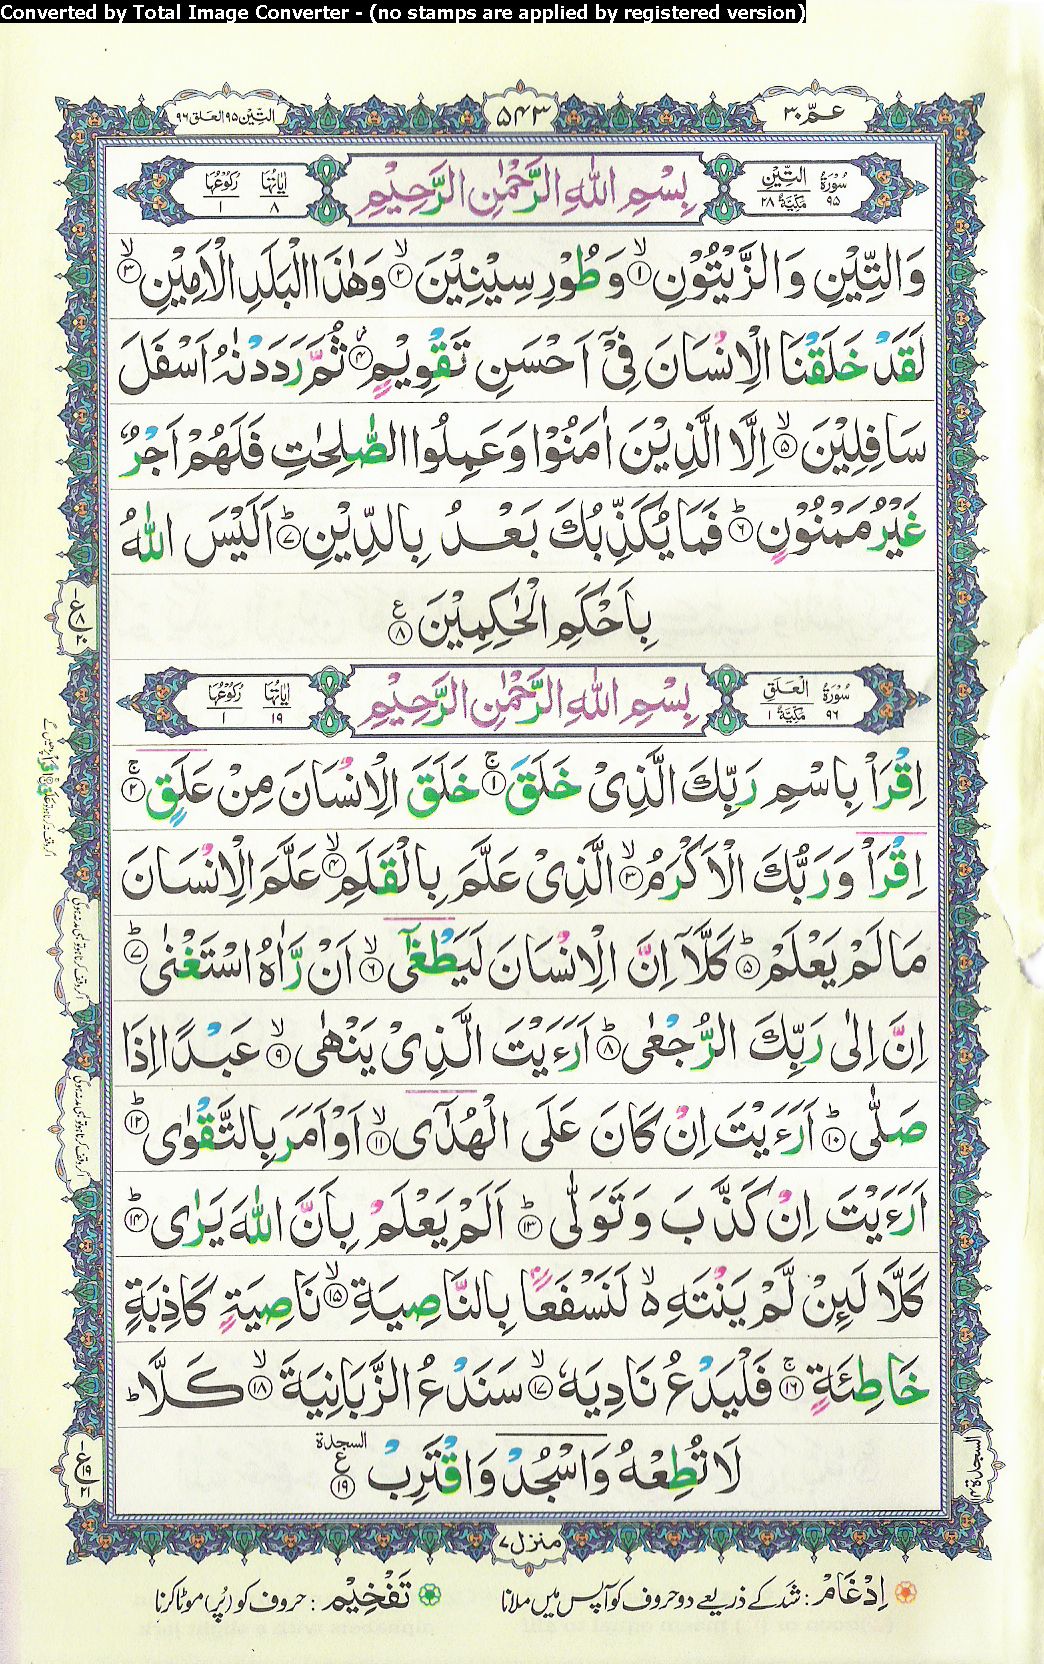 Converted by Total Image Converter - (no stamps are applied by registered version)
عمّ ۳۰
۵۴۳
التّين ۹۵ العلق ۹۶
سُوْرَةُ التِّيْنِ ۹۵ مَكِّيَّةٌ ۲۸
بِسْمِ اللّٰهِ الرَّحْمٰنِ الرَّحِيْمِ
اٰيَاتُهَا ۸ رُكُوْعُهَا ۱
وَالتِّيْنِ وَالزَّيْتُوْنِ ۙ۱ وَطُوْرِ سِيْنِيْنَ ۙ۲ وَهٰذَا الْبَلَدِ الْاَمِيْنِ ۙ۳
لَقَدْ خَلَقْنَا الْاِنْسَانَ فِيْٓ اَحْسَنِ تَقْوِيْمٍ ۴ ثُمَّ رَدَدْنٰهُ اَسْفَلَ
سَافِلِيْنَ ۙ۵ اِلَّا الَّذِيْنَ اٰمَنُوْا وَعَمِلُوا الصّٰلِحٰتِ فَلَهُمْ اَجْرٌ
غَيْرُ مَمْنُوْنٍ ؕ۶ فَمَا يُكَذِّبُكَ بَعْدُ بِالدِّيْنِ ؕ۷ اَلَيْسَ اللّٰهُ
بِاَحْكَمِ الْحٰكِمِيْنَ ۸ ع
سُوْرَةُ الْعَلَقِ ۹۶ مَكِّيَّةٌ ۱
بِسْمِ اللّٰهِ الرَّحْمٰنِ الرَّحِيْمِ
اٰيَاتُهَا ۱۹ رُكُوْعُهَا ۱
اِقْرَاْ بِاسْمِ رَبِّكَ الَّذِيْ خَلَقَ ۚ۱ خَلَقَ الْاِنْسَانَ مِنْ عَلَقٍ ۚ۲
اِقْرَاْ وَرَبُّكَ الْاَكْرَمُ ۙ۳ الَّذِيْ عَلَّمَ بِالْقَلَمِ ۙ۴ عَلَّمَ الْاِنْسَانَ
مَا لَمْ يَعْلَمْ ؕ۵ كَلَّآ اِنَّ الْاِنْسَانَ لَيَطْغٰٓى ۙ۶ اَنْ رَّاٰهُ اسْتَغْنٰى ؕ۷
اِنَّ اِلٰى رَبِّكَ الرُّجْعٰى ؕ۸ اَرَءَيْتَ الَّذِيْ يَنْهٰى ۙ۹ عَبْدًا اِذَا
صَلّٰى ؕ۱۰ اَرَءَيْتَ اِنْ كَانَ عَلَى الْهُدٰٓى ۙ۱۱ اَوْ اَمَرَ بِالتَّقْوٰى ؕ۱۲
اَرَءَيْتَ اِنْ كَذَّبَ وَتَوَلّٰى ؕ۱۳ اَلَمْ يَعْلَمْ بِاَنَّ اللّٰهَ يَرٰى ؕ۱۴
كَلَّا لَئِنْ لَّمْ يَنْتَهِ ۙ۬ لَنَسْفَعًۢا بِالنَّاصِيَةِ ۙ۱۵ نَاصِيَةٍ كَاذِبَةٍ
خَاطِئَةٍ ۚ۱۶ فَلْيَدْعُ نَادِيَهٗ ۙ۱۷ سَنَدْعُ الزَّبَانِيَةَ ۙ۱۸ كَلَّا ؕ
لَا تُطِعْهُ وَاسْجُدْ وَاقْتَرِبْ ۱۹ ع السجدة
السجدة ۱۴
منزل ۷
اِدْغَام : شد کے ذریعے دو حروف کو آپس میں ملانا
تَفْخِيْم : حروف کو (پُر) موٹا کرنا